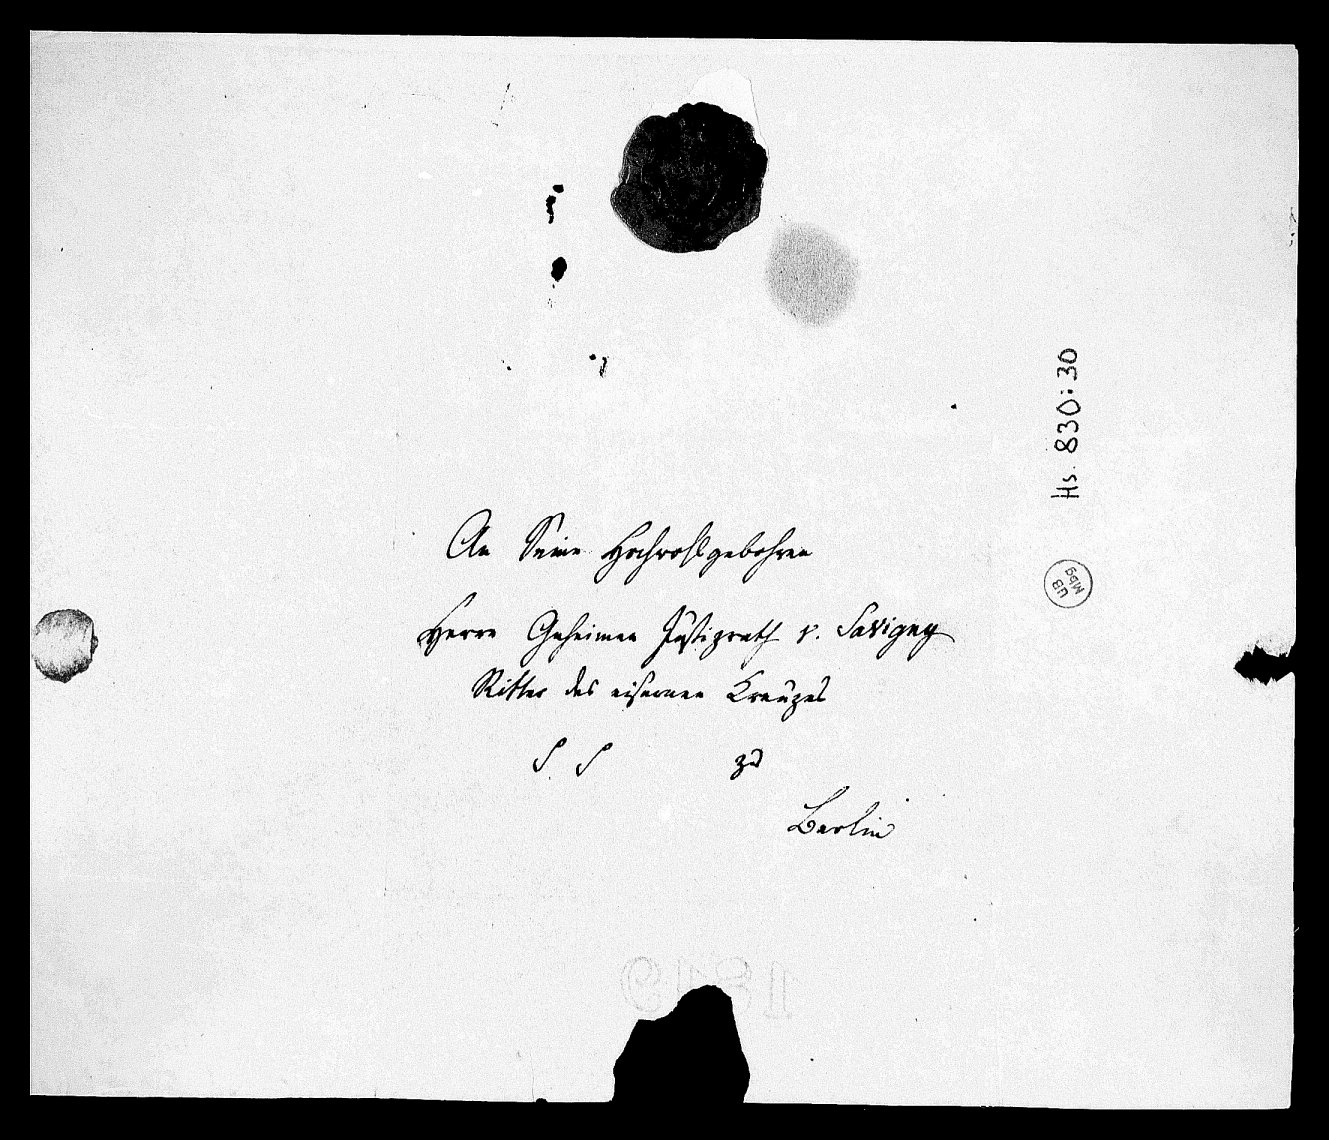 An Seine Hochwohlgebohren
Herrn Geheimen Justizrath v. Savigny
Ritter des eisernen Kreuzes
zu
Berlin
Hs. 830:30
UB
Mbg